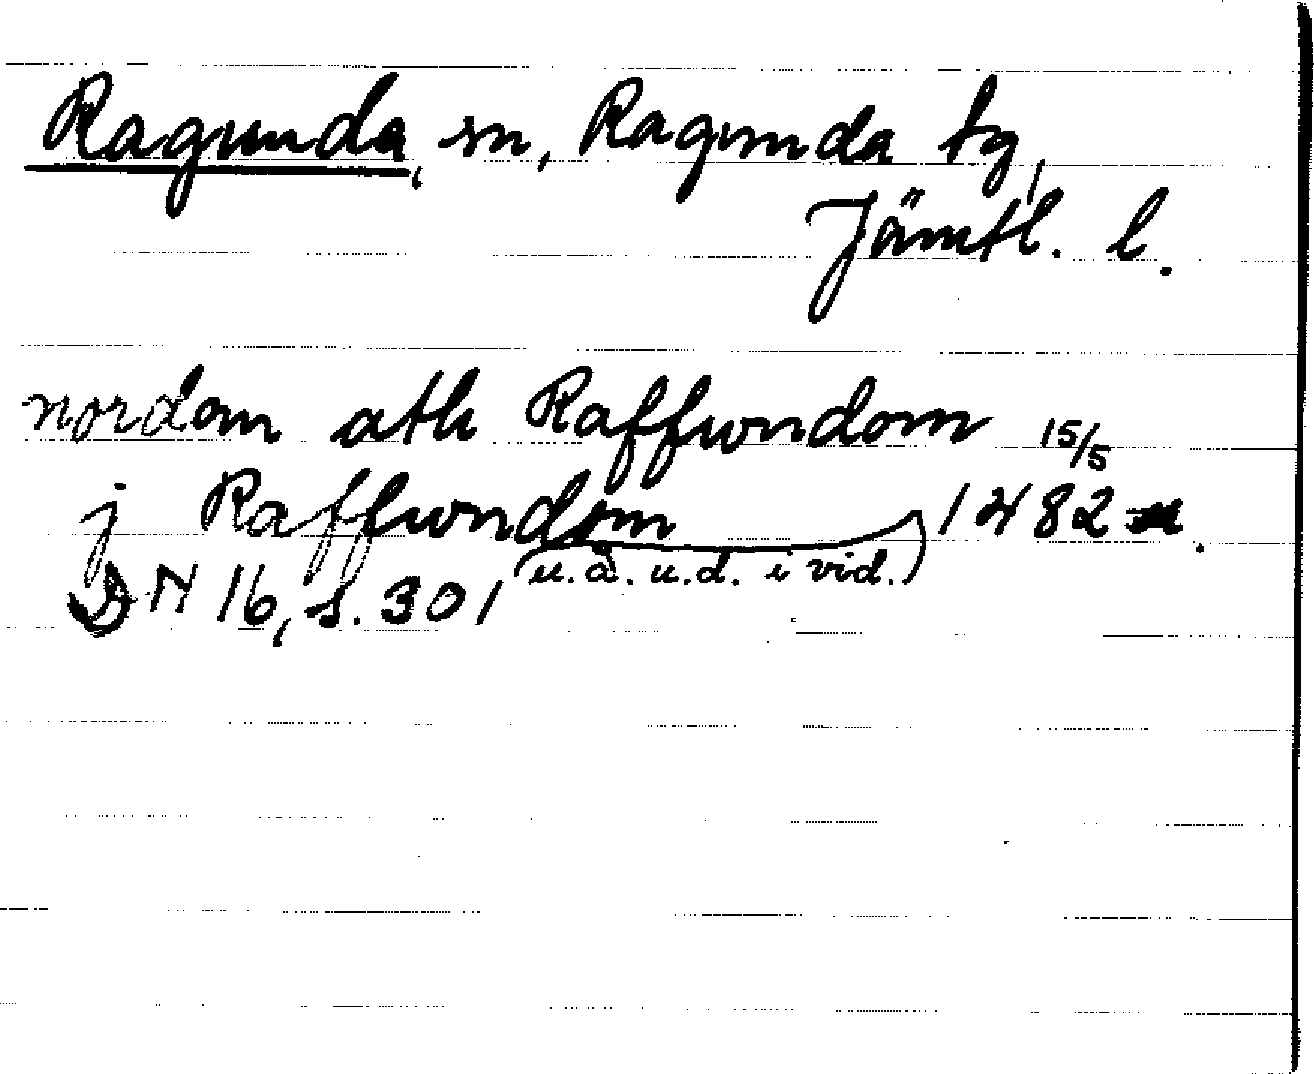 Ragunda, sn, Ragunda tg,
Jämtl. l.
nordom ath Raffwndom 15/5
j Raffwndom 1482.
(u. å. u. d. i vid.)
DN 16, s. 301